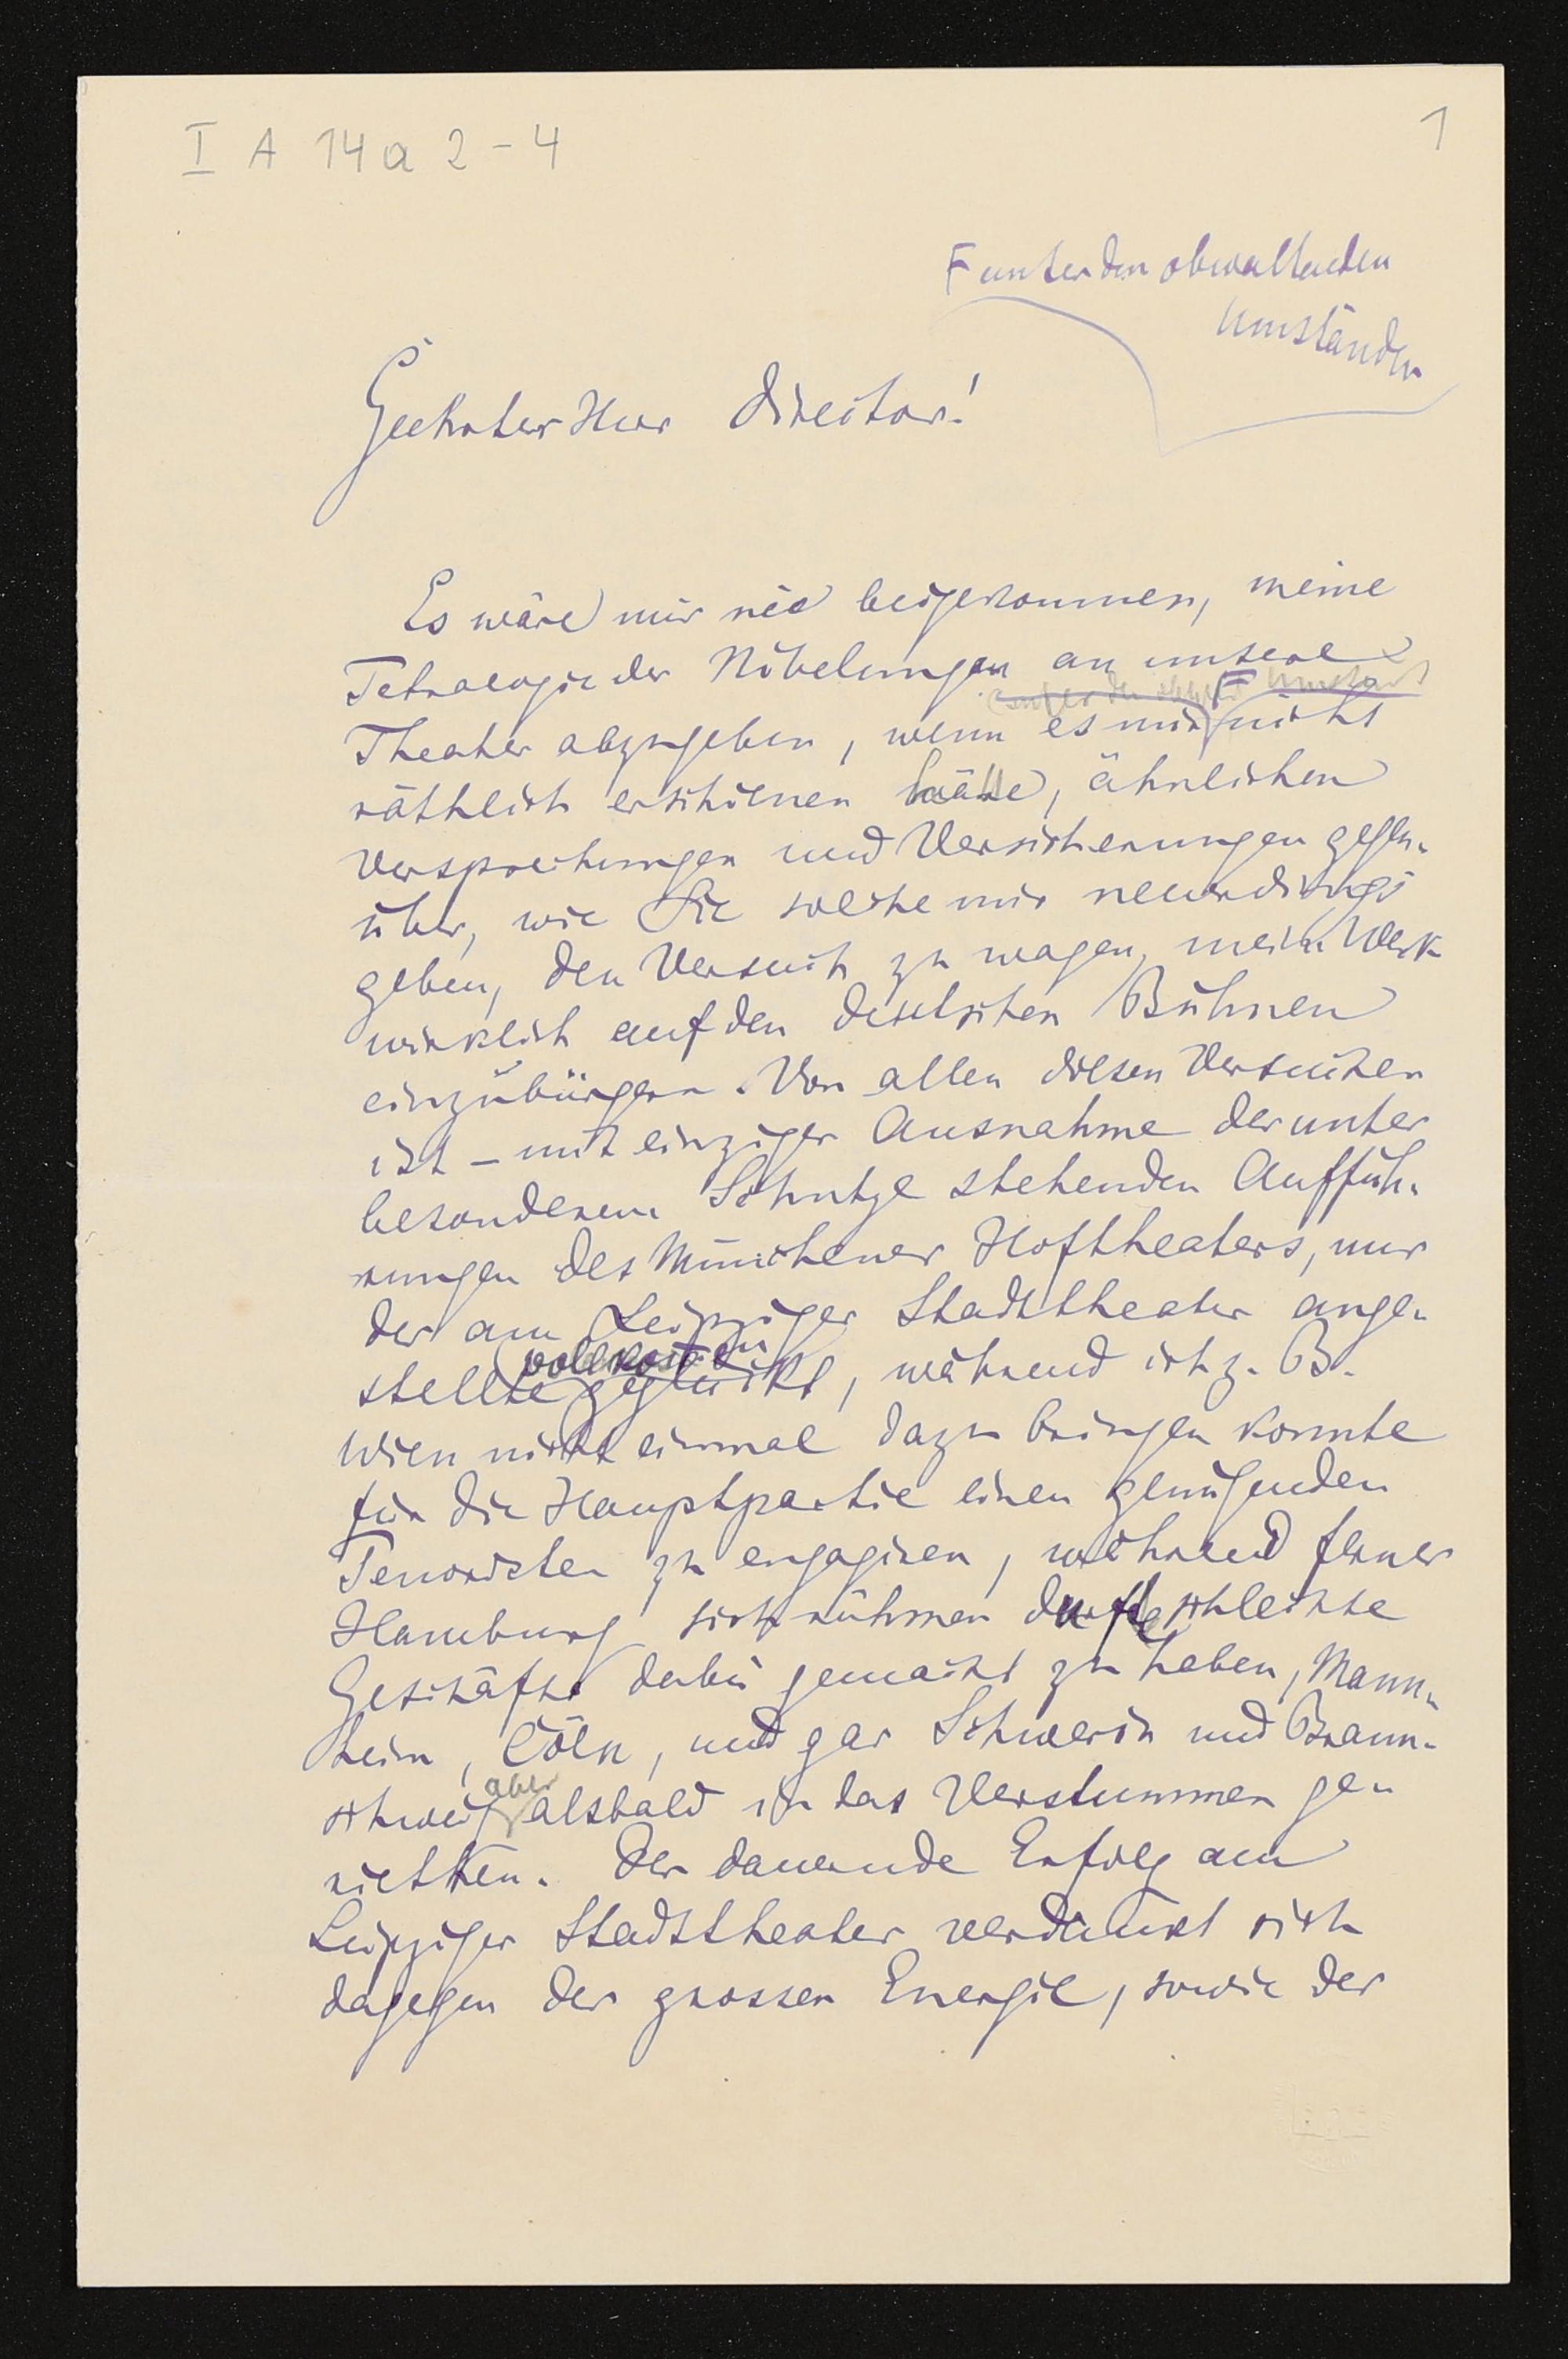 I A 14a 2-4
1
F unter den obwaltenden
Umständen
Geehrter Herr Director!
Es wäre mir nie beigekommen, meine
Tetralogie der Nibelungen an unsere
unter den obwalt Umständ F
Theater abzugeben, wenn es mir nicht
räthlich erschienen wäre, ähnlichen
Versprechungen und Versicherungen gegen-
über, wie Sie solche mir neuerdings
geben, den Versuch zu wagen, mein Werk
wirklich auf den deutschen Bühnen
einzubürgern. Von allen diesen Versuchen
ist – mit einziger Ausnahme der unter
besonderem Schutze stehenden Auffüh-
rungen des Münchener Hoftheaters, nur
der am Leipziger Stadttheater ange-
stellte geglückt, während ich z. B.
Wien nicht einmal dazu bringen konnte
für die Hauptpartie einen genügenden
Tenoristen zu engagiren, während ferner
Hamburg sich rühmen durfte schlechte
Geschäfte dabei gemacht zu haben, Mann-
heim, Cöln, und gar Schwerin und Braun-
aber
schweig alsbald in das Verstummen ge-
riethen. Der dauernde Erfolg am
Leipziger Stadttheater verdankt sich
dagegen der grossen Energie, sowie der